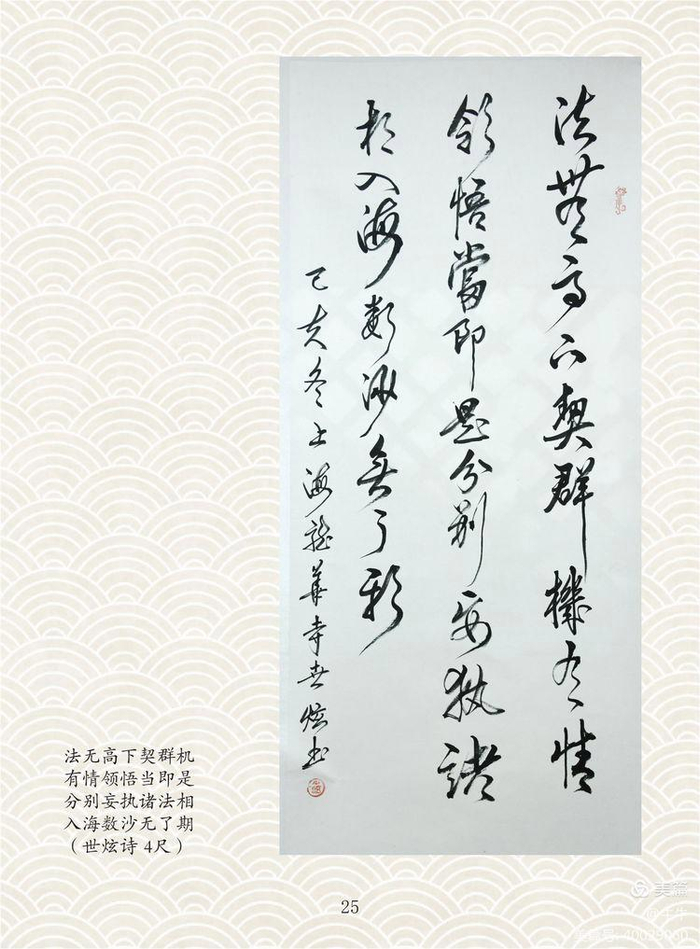 法無高下契群機有情
領悟當即是分別妄執諸
相入海数沙無了期
己亥冬上海龍華寺世炫书
法无高下契群机
有情领悟当即是
分别妄执诸法相
入海数沙无了期
（世炫诗 4尺）
25
美篇